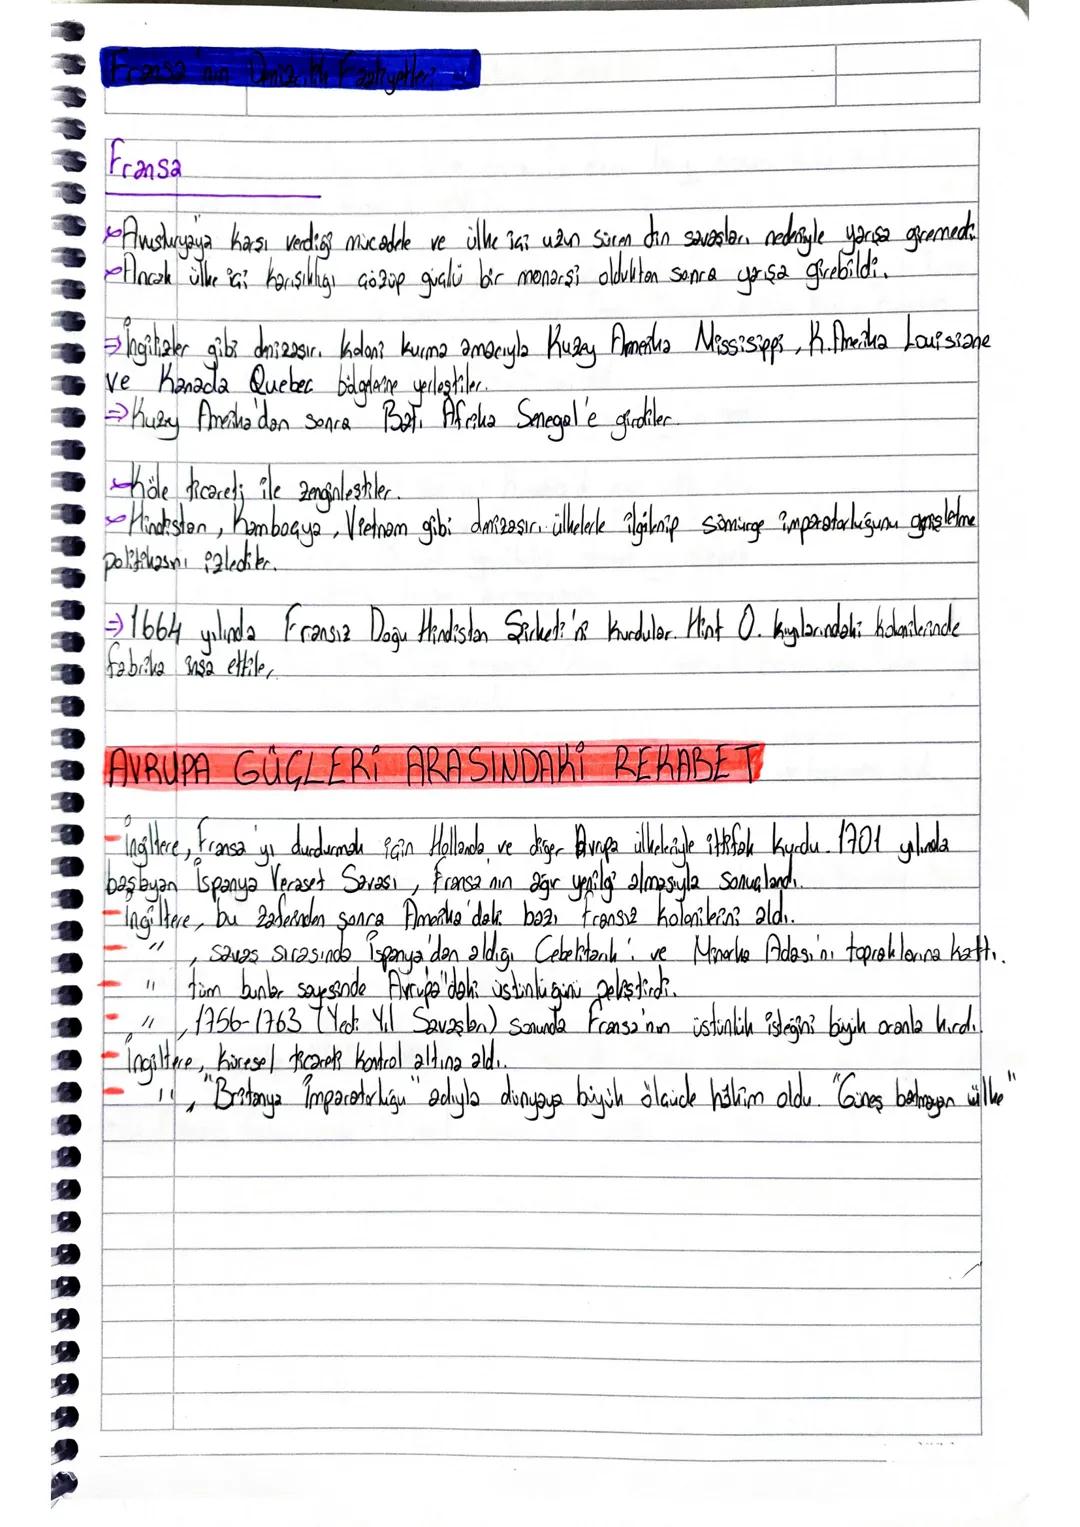 Fransa'nın Denizcilik Faaliyetleri
Fransa
Avusturyaya karşı verdiği mücadele ve ülke içi uzun süren din savaşları nedeniyle yarışa giremedi.
Ancak ülke içi karışıklığı çözüp güçlü bir monarşi olduktan sonra yarışa girebildi.
⇒ İngilizler gibi denizaşırı koloni kurma amacıyla Kuzey Amerika Mississippi, K.Amerika Louisiane
ve Kanada Quebec bölgelerine yerleştiler.
⇒ Kuzey Amerika'dan sonra Batı Afrika Senegal'e girdiler.
Köle ticareti ile zenginleştiler.
Hindistan, Kamboçya, Vietnam gibi denizaşırı ülkelerle ilgilenip sömürge imparatorluğunu genişletme
politikasını izlediler.
⇒ 1664 yılında Fransız Doğu Hindistan Şirketi'ni kurdular. Hint O. kıyılarındaki kolonilerinde
fabrika inşa ettiler.
AVRUPA GÜÇLERİ ARASINDAKİ REKABET
- İngiltere, Fransa'yı durdurmak için Hollanda ve diğer Avrupa ülkeleriyle ittifak kurdu. 1701 yılında
başlayan İspanya Veraset Savaşı, Fransa'nın ağır yenilgi almasıyla sonuçlandı.
- İngiltere, bu zaferinden sonra Amerika'daki bazı Fransız kolonilerini aldı.
- " , savaş sırasında İspanya'dan aldığı Cebelitarık'ı ve Minorka Adası'nı topraklarına kattı.
- " tüm bunlar sayesinde Avrupa'daki üstünlüğünü pekiştirdi.
- " , 1756-1763 (Yedi Yıl Savaşları) sonunda Fransa'nın üstünlük isteğini büyük oranla kırdı.
- İngiltere, küresel ticareti kontrol altına aldı.
- " , "Britanya İmparatorluğu" adıyla dünyaya büyük ölçüde hâkim oldu. "Güneş batmayan ülke"